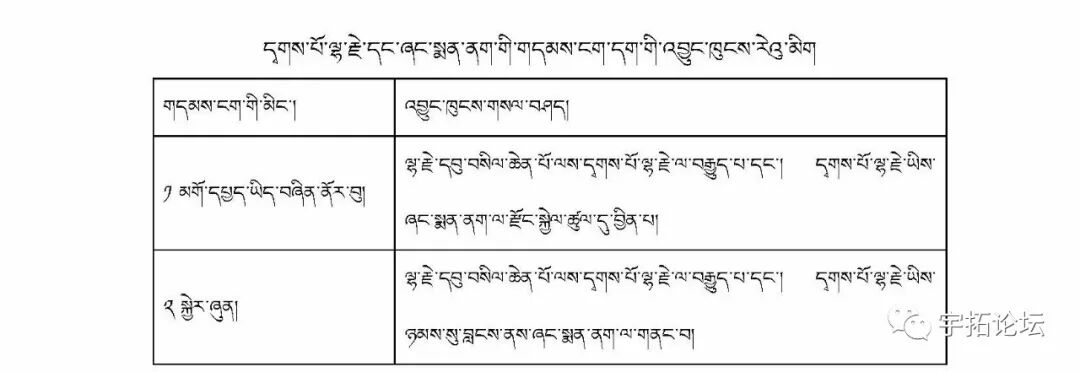 དྭགས་པོ་ལྷ་རྗེ་དང་ཞང་སྨན་ནག་གི་གདམས་ངག་དག་གི་འབྱུང་ཁུངས་རེའུ་མིག
གདམས་ངག་གི་མིང་།
འབྱུང་ཁུངས་གསལ་བཤད།
༡ མགོ་དཔྱད་ཡིད་བཞིན་ནོར་བུ།
ལྷ་རྗེ་དབུ་བསིལ་ཆེན་པོ་ལས་དྭགས་པོ་ལྷ་རྗེ་ལ་བརྒྱུད་པ་དང་། དྭགས་པོ་ལྷ་རྗེ་ཡིས་
ཞང་སྨན་ནག་ལ་རྫོང་སྐྱེལ་ཚུལ་དུ་བྱིན་པ།
༢ སྐྱེར་ཞུན།
ལྷ་རྗེ་དབུ་བསིལ་ཆེན་པོ་ལས་དྭགས་པོ་ལྷ་རྗེ་ལ་བརྒྱུད་པ་དང་། དྭགས་པོ་ལྷ་རྗེ་ཡིས་
ཉམས་སུ་བླངས་ནས་ཞང་སྨན་ནག་ལ་གནང་བ།
宇拓论坛